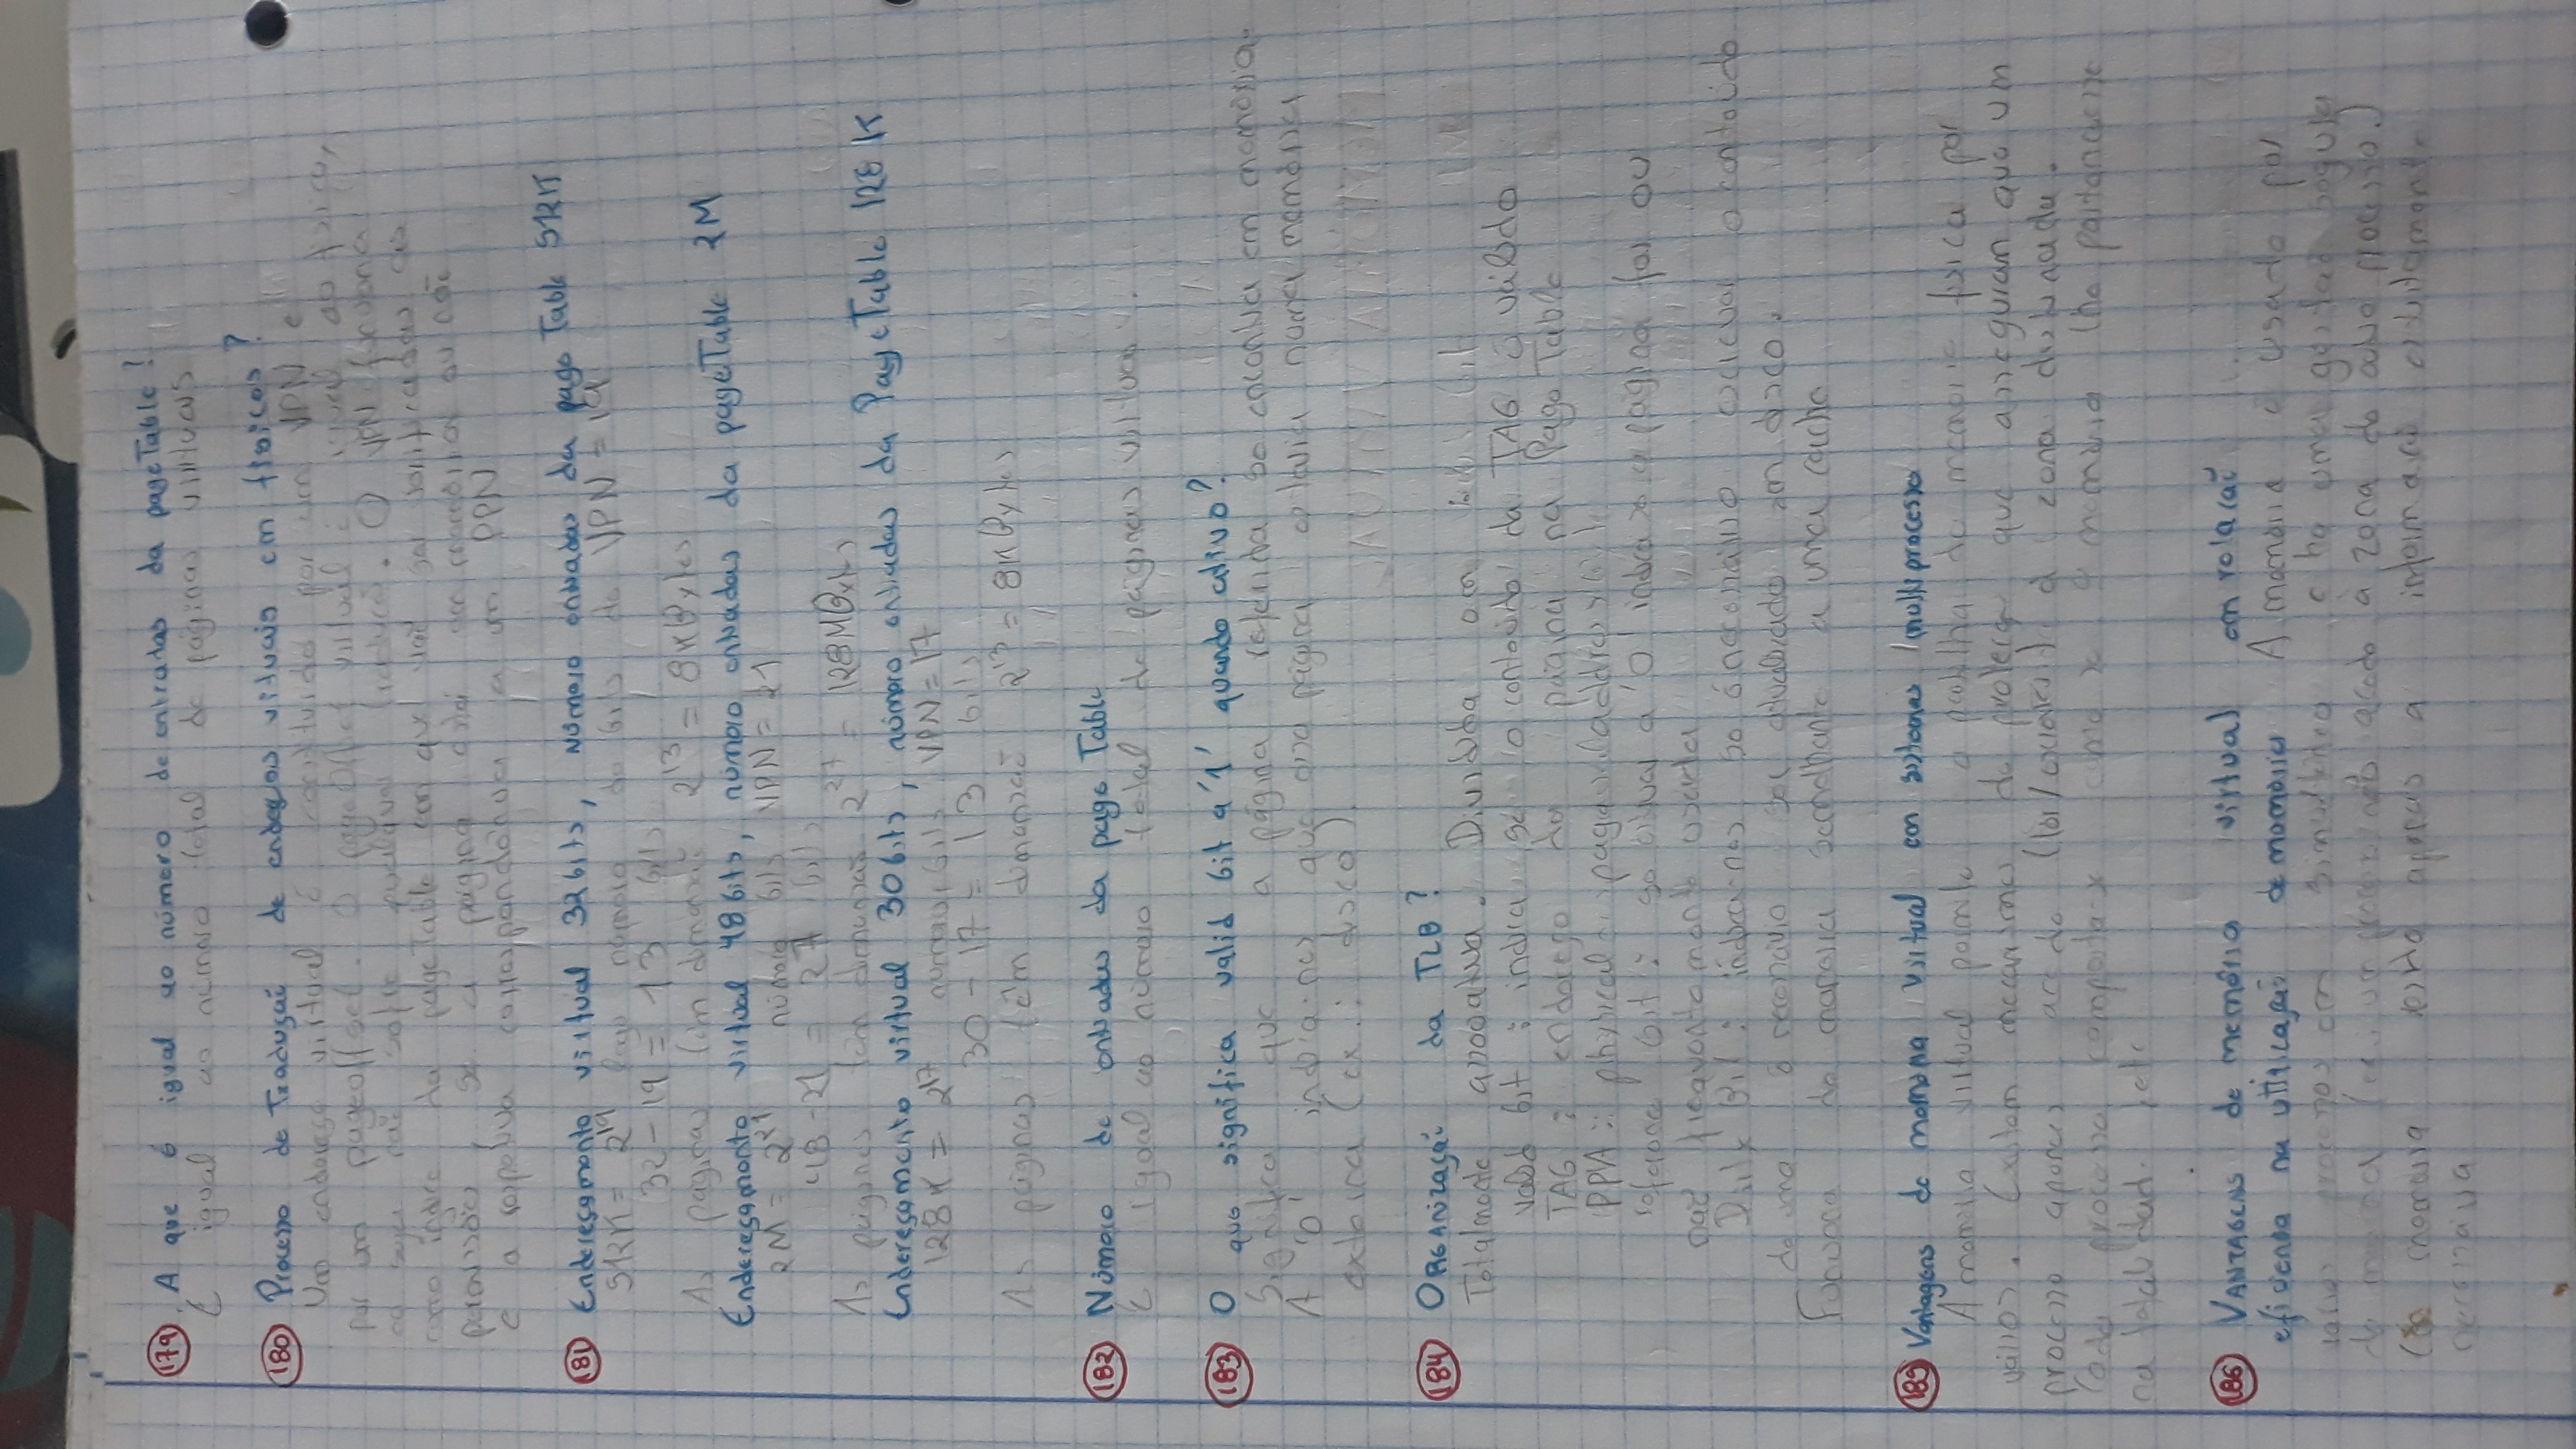 179. A que é igual ao número de entradas da pageTable?
É igual ao número total de páginas virtuais
180 Processo de Tradução de endereços virtuais em físicos?
Um endereço virtual é constituído por um VPN e
por um pageoffset. O pageOffset virtual é igual ao físico,
ou seja não sofre qualquer tradução. O VPN funciona
como índice da pageTable em que vão ser verificadas as
permissões, se a página está em memória ou não
e a respetiva correspondência a um PPN
181 Endereçamento virtual 32bits, Número entradas da page Table 512K
512K = 2^19 logo número de bits do VPN = 19
32 - 19 = 13 bits
As páginas têm dimensão 2^13 = 8KBytes
Endereçamento virtual 48bits, número entradas da pageTable 2M
2M = 2^21 número bits VPN = 21
48 - 21 = 27 bits
As páginas têm dimensão 2^27 = 128MBytes
Endereçamento virtual 30bits, número entradas da PageTable 128K
128K = 2^17 número bits VPN = 17
30 - 17 = 13 bits
As páginas têm dimensão 2^13 = 8KBytes
182 Número de entradas da page Table
É igual ao número total de páginas virtuais.
183 O que significa valid bit a '1' quando ativo?
Significa que a página referida se encontra em memória.
A '0' indica-nos que essa página estaria numa memória
externa (ex.: disco)
184 ORGANização da TLB?
Totalmente associativa. Dividida em bit
valid bit : indica se o conteúdo da TAG é válido
TAG : endereço da página na Page Table
PPA : physical page address
bit : se a '0' indica se a página foi ou
não frequentemente usada
Dirty Bit : indica-nos se é necessário o conteúdo
de uma é necessário ser atualizado em disco.
Funciona de maneira semelhante a uma cache
185 Vantagens de memória virtual em sistemas multiprocesso
A memória virtual permite a partilha da memória física por
vários. Existem mecanismos de proteção que asseguram que um
processo apenas aceda (ler/escrever) à zona destinada.
Cada processo comporta-se como se a memória lhe pertencesse
na totalidade. etc
186 VANTAGENS de memória virtual em relação
eficiência na utilização de memória A memória é usada por
vários processos em simultâneo e há uma gestão segura
da memória (ex: um processo não acede à zona do outro processo.)
memória apenas a informação estritamente
necessária